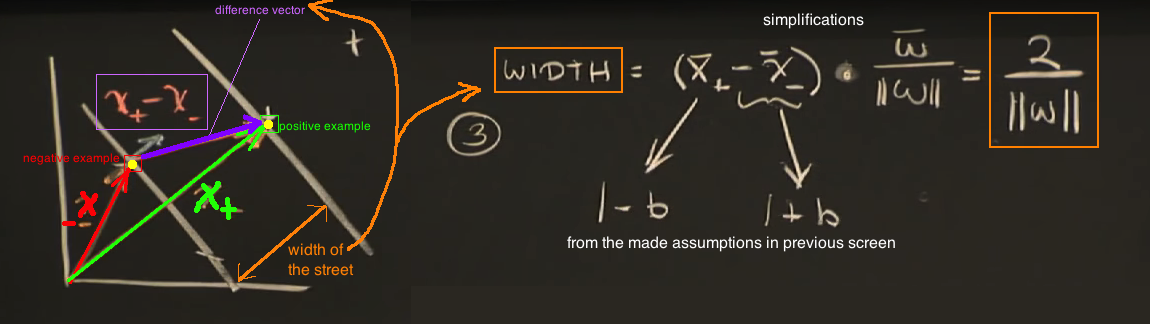 difference vector
+
x₊ - x₋
positive example
negative example
x₋
x₊
width of
the street
simplifications
WIDTH = (x̄₊ - x̄₋) · w̄ / ||w|| = 2 / ||w||
3
1 - b
1 + b
from the made assumptions in previous screen